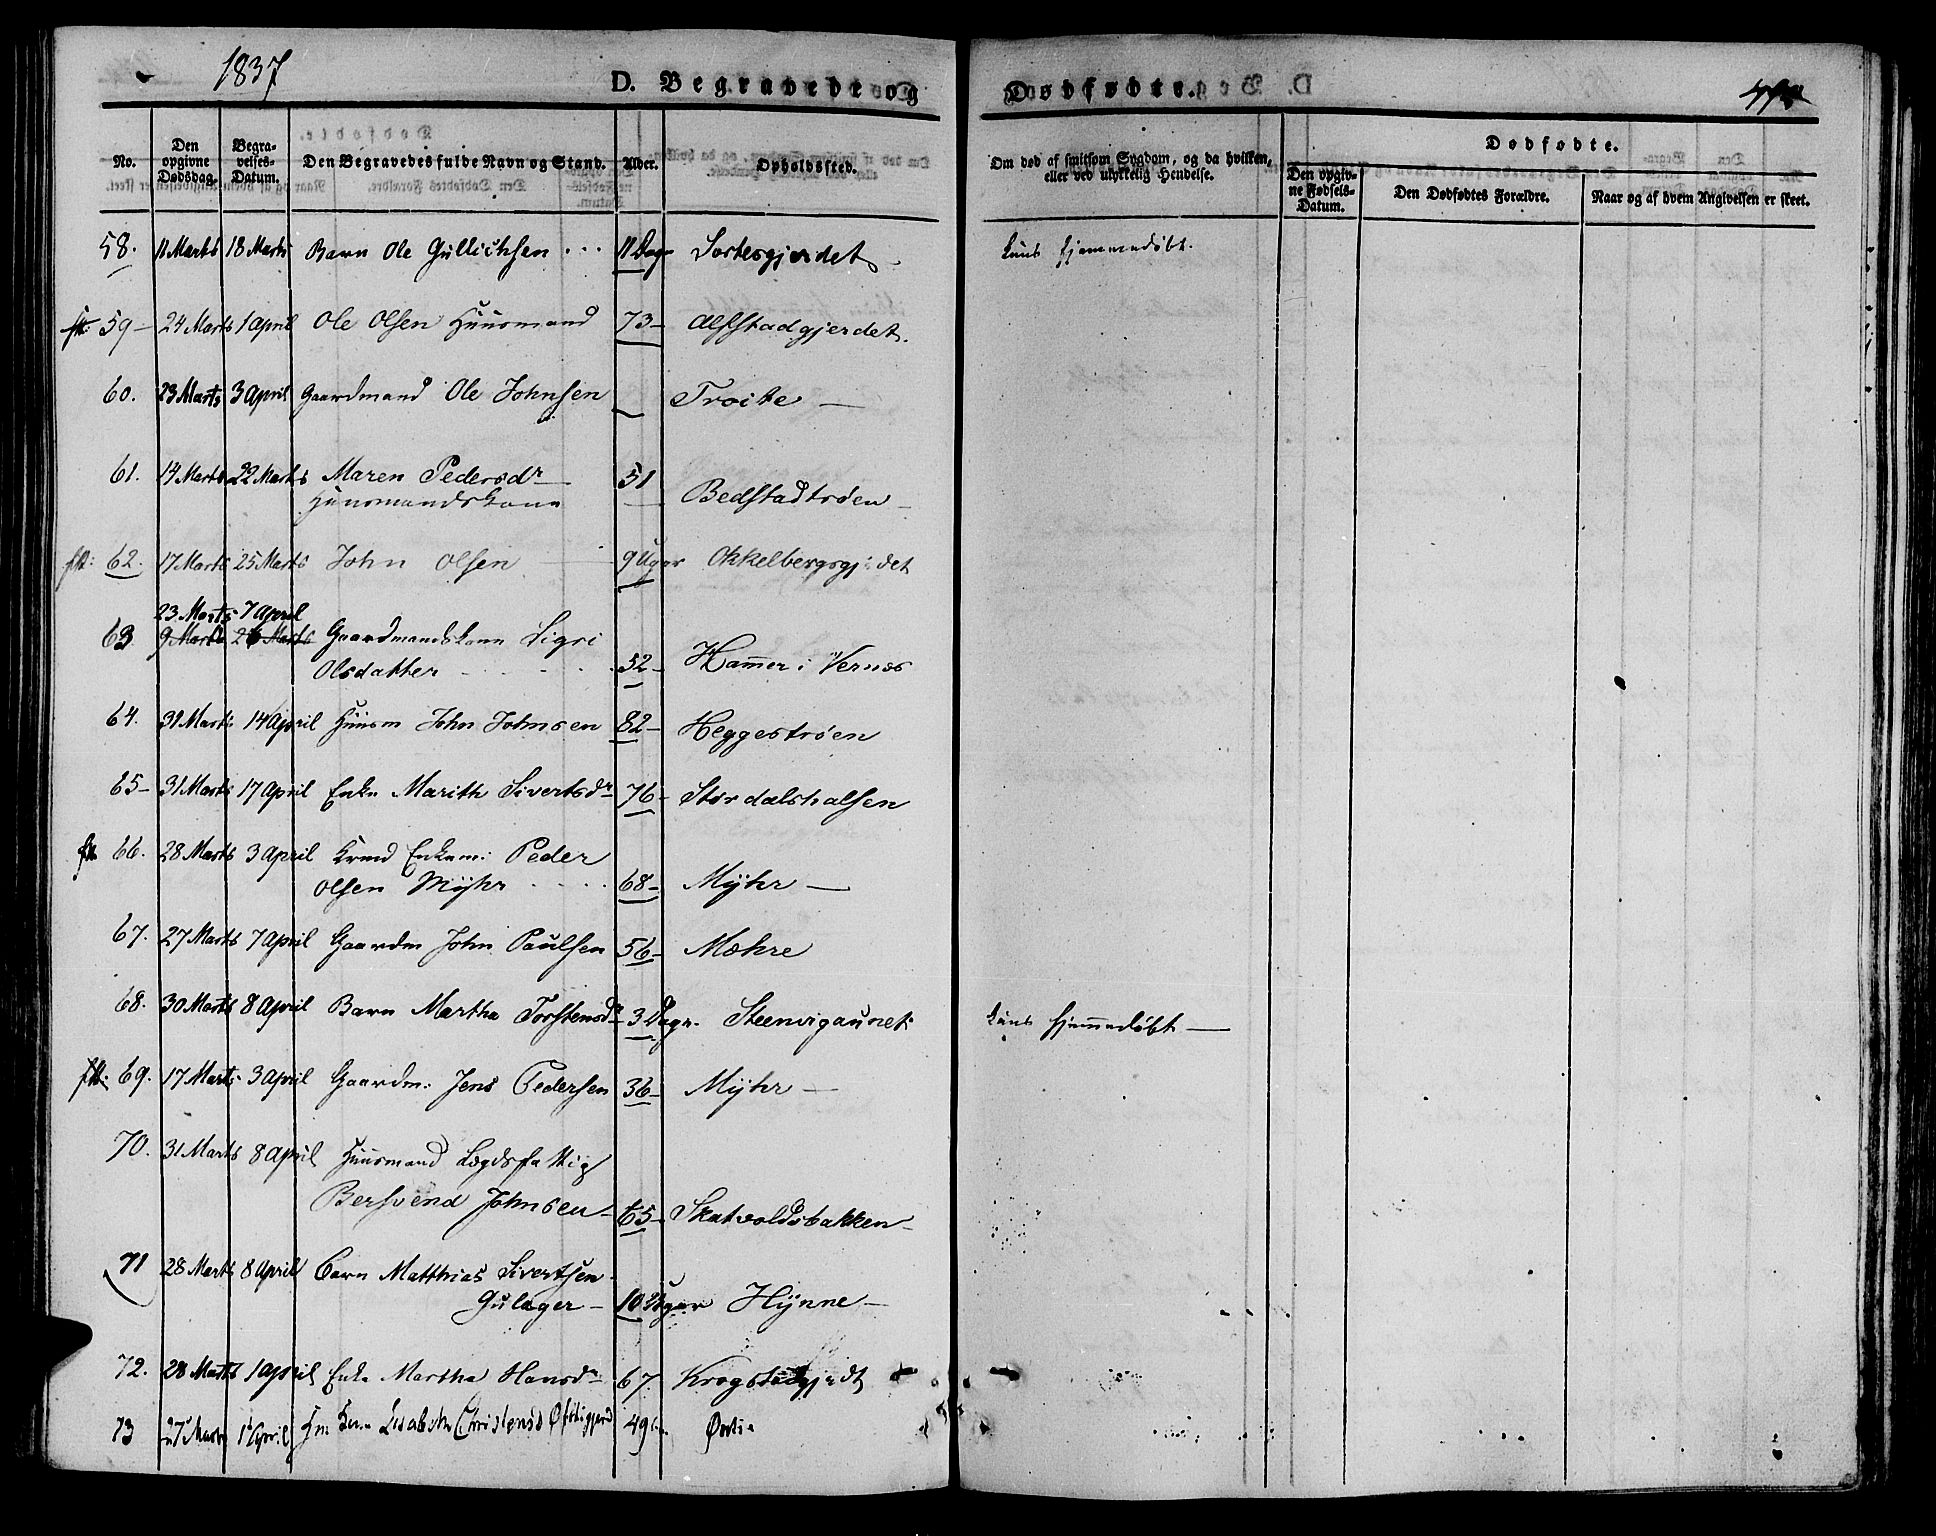 1837
D. Begravede og Dødfødte.
No. Den opgivne Dødsdag. Begravelses-Datum. Den Begravedes fulde Navn og Stand. Alder. Opholdssted. Om død af smitsom Sygdom, og da hvilken, eller ved ulykkelig Hendelse. Dødfødte. Den opgivne Fødsels-Datum. Den Dødfødtes Forældre. Naar og af hvem Angivelsen er skeet.
58. 11 Marts 18 Marts Barn Ole Gullichsen 11 Dage kuns hjemmedøbt.
59 24 Marts 1 April Ole Olsen Huusmand 73 Alfstadgjerdet.
60. 23 Marts 3 April Gaardmand Ole Johnsen Troite
61. 14 Marts 22 Marts Maren Pedersdr 51 Bedstadtrøen
Huusmandskone
62. 17 Marts 25 Marts John Olsen 9 Uger Okkelbergsgjerdet
23 Marts 7 April
63 9 Marts 26 Marts Gaardmandskone Sigri
Olsdatter 52 Hammer i Vernes
64. 31 Marts 14 April Huusm John Johnsen 82 Heggestrøen
65 31 Marts 17 April Enke Marith Sivertsdr 76 Stordalshalsen
66. 28 Marts 3 April Enkem: Peder
Olsen Mÿhr 68 Mÿhr
67. 27 Marts 7 April Gaardm John Paulsen 56 Mæhre
68. 30 Marts 8 April Barn Martha Torstensdr 3 Dage. Steenvigaunet kuns hjemmedøbt
69. 17 Marts 3 April Gaardm: Jens Pedersen 36 Mÿhr
70. 31 Marts 8 April Huusmand Lægdsfattig
Bersvend Johnsen 65 Skatvoldsbakken
71 28 Marts 8 April Barn Matthias Sivertsen
Gulager 10 Uger Hÿnne
72. 28 Marts 1 April Enke Martha Hansdr 67 Krogstadgjerdt
73 27 Marts 1 April Lisabeth Christensd 49